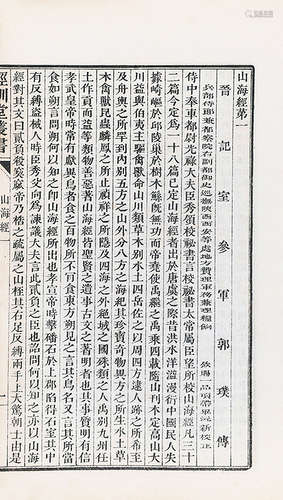 山海經第一
晉記室參軍郭璞傳
兵部侍郎兼都察院右副都御史巡撫陝西西安等處地方贊理軍務兼理糧餉 欽賜一品頂帶畢沅新校正
侍中奉車都尉光祿大夫臣秀領校祕書言校祕書太常屬臣望所校山海經凡三十
二篇今定爲一十八篇已定山海經者出於唐虞之際昔洪水洋溢漫衍中國民人失
據崎嶇於邱陵巢於樹木鯀旣無功而帝堯使禹繼之禹乘四載隨山刊木定高山大
川益與伯翳主驅禽獸命山川類草木別水土四岳佐之以周四方逮人跡之所希至
及舟輿之所罕到内別五方之山外分八方之海紀其珍寶奇物異方之所生水土草
木禽獸昆蟲麟鳳之所止禎祥之所隱及四海之外絶域之國殊類之人禹別九州任
土作貢而益等類物善惡著山海經皆賢聖之遺事古文之著明者也其事質明有信
孝武皇帝時常有獻異鳥者食之百物所不肯食東方朔見之言其鳥名又言其所當
食如朔言問朔何以知之卽山海經所出也孝宣帝時擊磻石於上郡陷得石室其中
有反縛盜械人時臣秀父向爲諫議大夫言此貳負之臣也詔問何以知之亦以山海
經對其文曰貳負殺窫窳帝乃梏之疏屬之山桎其右足反縛兩手上大驚朝士由是
經訓堂叢書
山海經
一